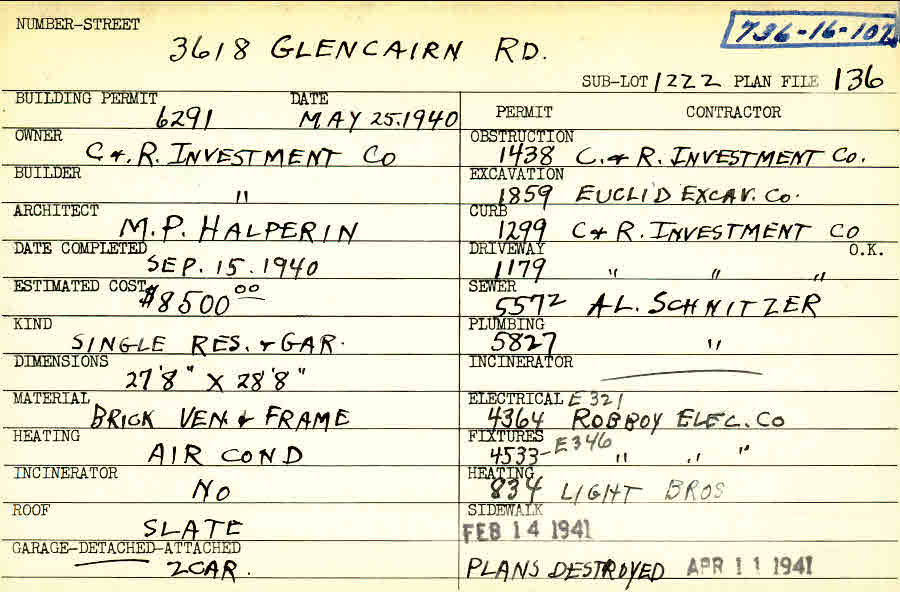 NUMBER-STREET
736-16-102
3618 GLENCAIRN RD.
SUB-LOT 1222 PLAN FILE 136
BUILDING PERMIT DATE
6291 MAY 25.1940
OWNER
C &. R. INVESTMENT CO
BUILDER
"
ARCHITECT
M.P. HALPERIN
DATE COMPLETED
SEP. 15. 1940
ESTIMATED COST
$8500 00
KIND
SINGLE RES. & GAR.
DIMENSIONS
27'8" X 28'8"
MATERIAL
BRICK VEN. & FRAME
HEATING
AIR COND
INCINERATOR
NO
ROOF
SLATE
GARAGE-DETACHED-ATTACHED
2CAR.
PERMIT CONTRACTOR
OBSTRUCTION
1438 C. & R. INVESTMENT CO.
EXCAVATION
1859 EUCLID EXCAV. CO.
CURB
1299 C & R. INVESTMENT CO
DRIVEWAY O.K.
1179 " " "
SEWER
5572 AL. SCHNITZER
PLUMBING
5827 "
INCINERATOR
ELECTRICAL E 321
4364 ROBBOY ELEC. CO
FIXTURES
4533- E346 " " "
HEATING
834 LIGHT BROS
SIDEWALK
FEB 14 1941
PLANS DESTROYED APR 11 1941